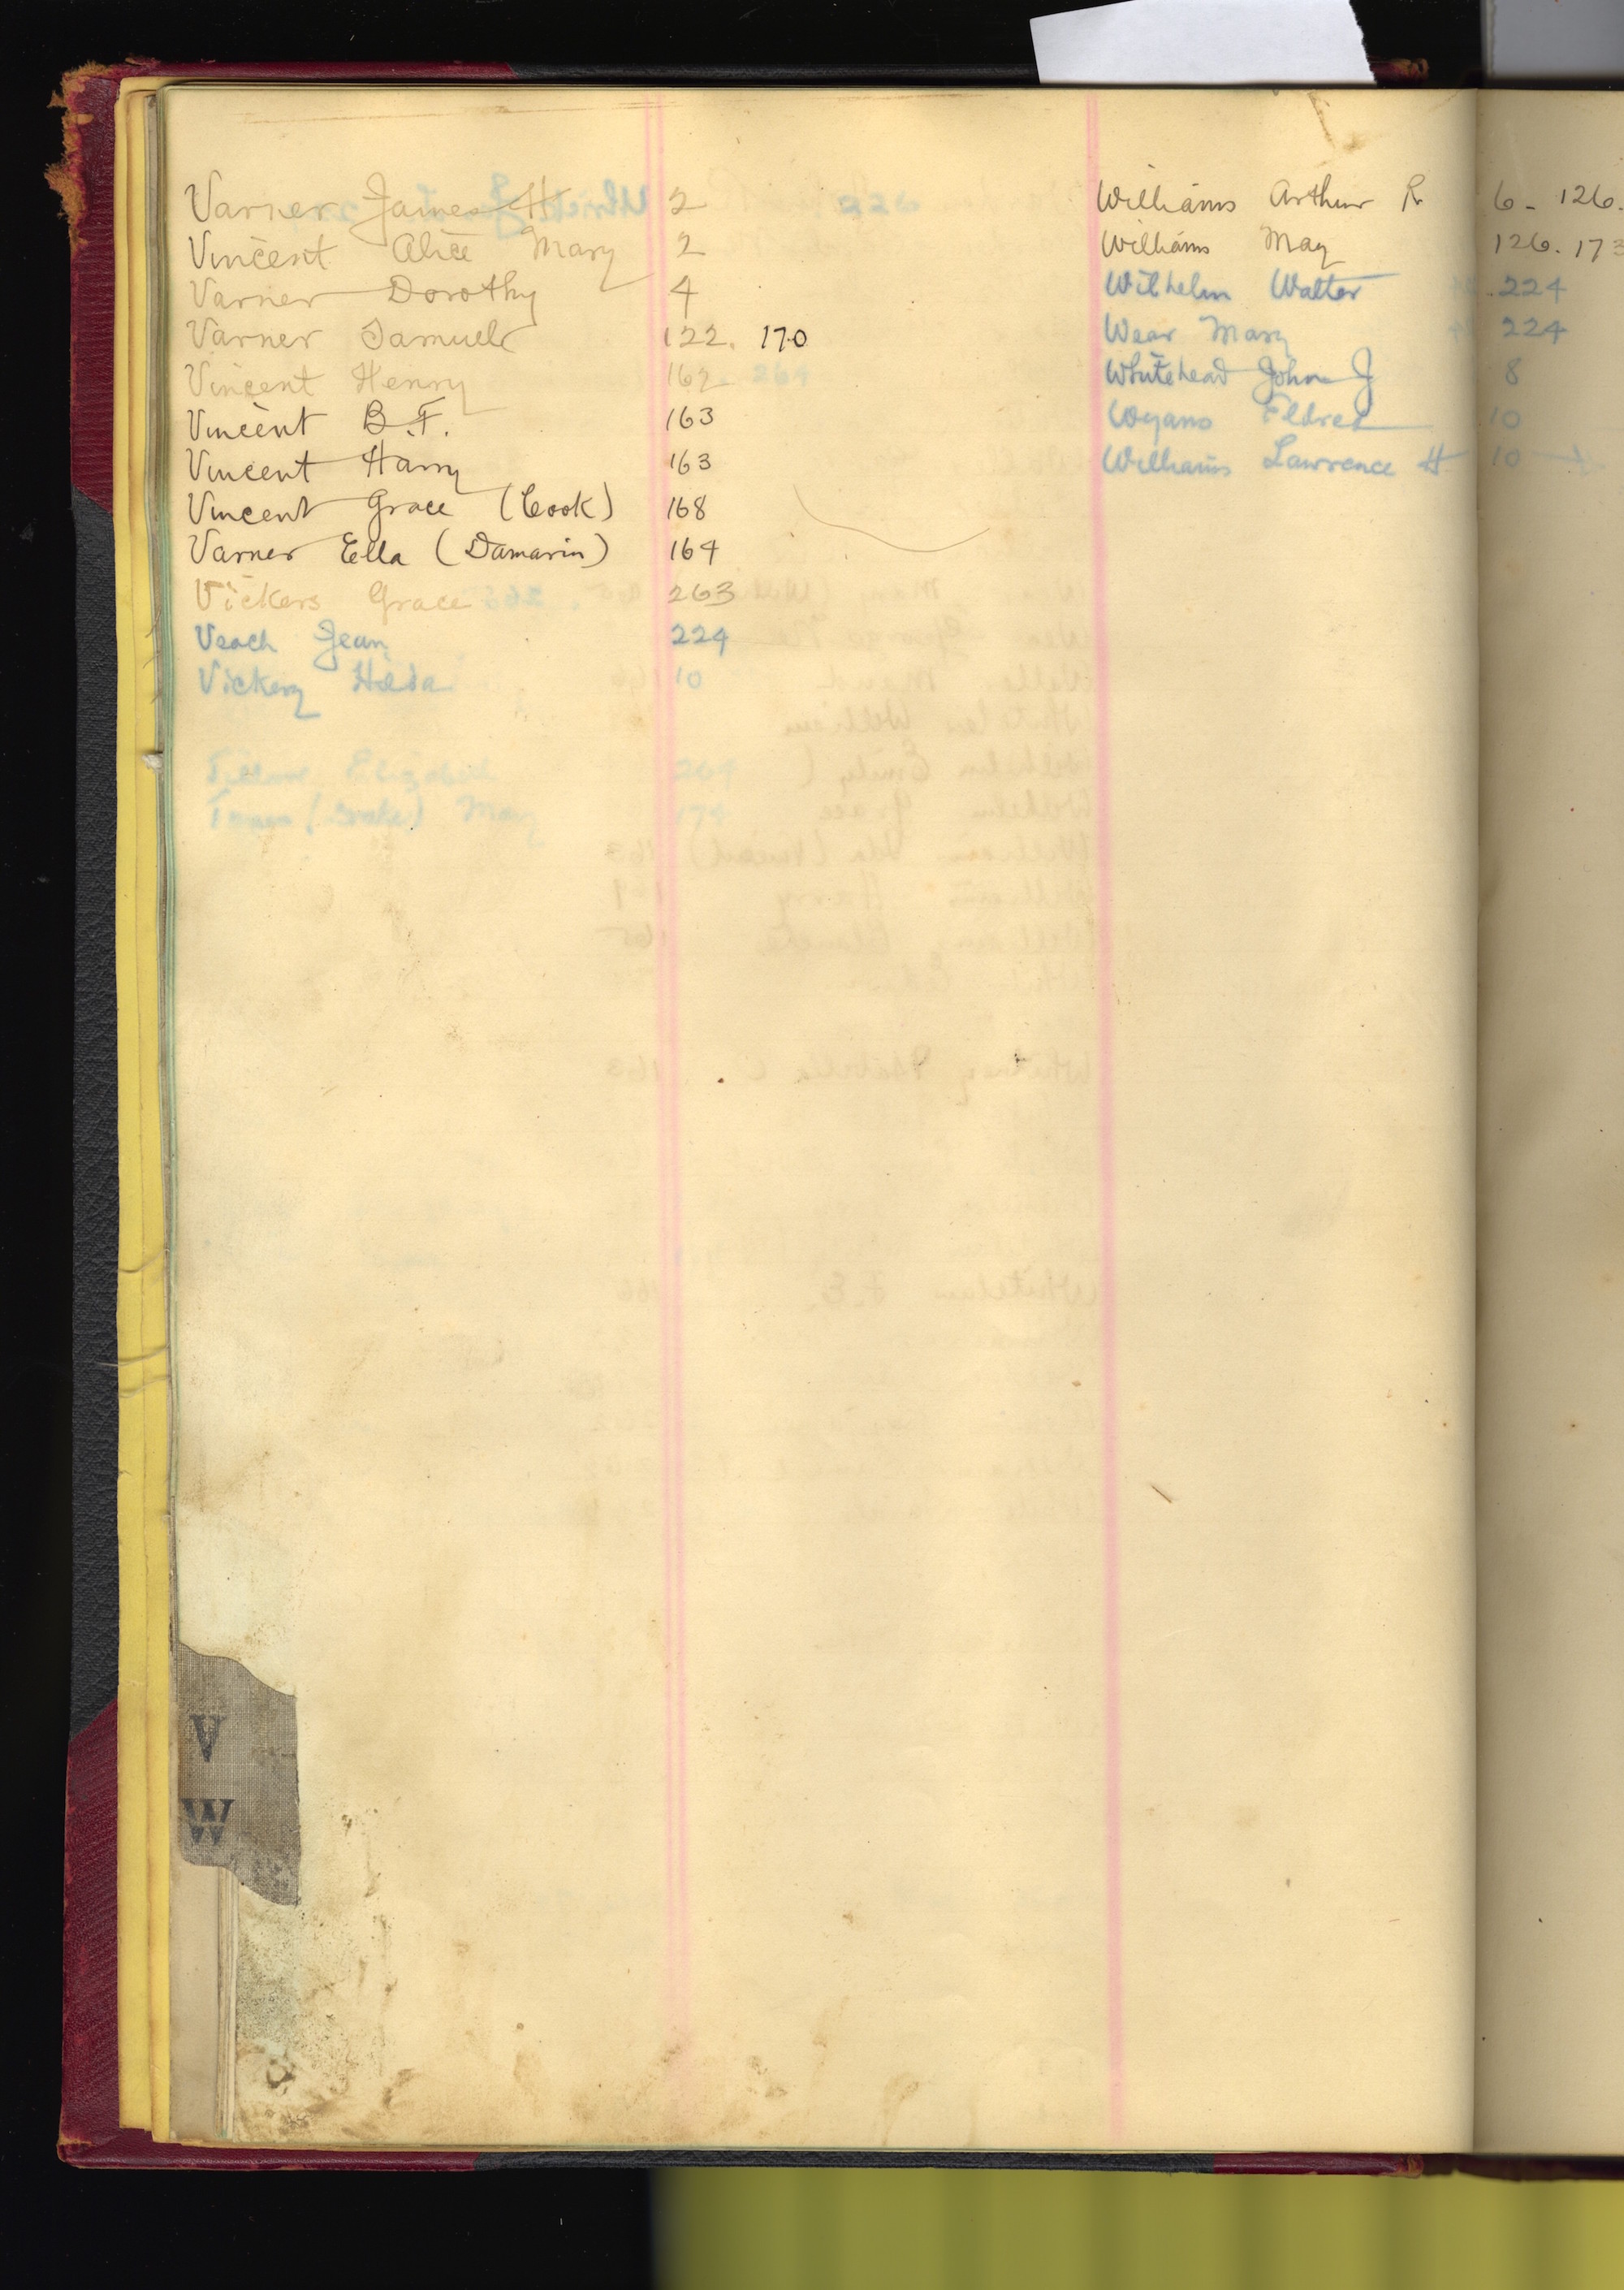 Varner James H 2
Vincent Alice Mary 2
Varner Dorothy 4
Varner Samuel 122. 170
Vincent Henry 162. 264
Vincent B.F. 163
Vincent Harry 163
Vincent Grace (Cook) 168
Varner Ella (Damarin) 164
Vickers Grace 263
Veach Jean 224
Vickery Hilda 10
Elizabeth 264
May 174
V
W
Williams Arthur R 6- 126.
Williams May 126. 173
Wilhelm Walter 224
Wear Mary 224
Whitehead John J 8
Wogans Eldred 10
Williams Lawrence H 10